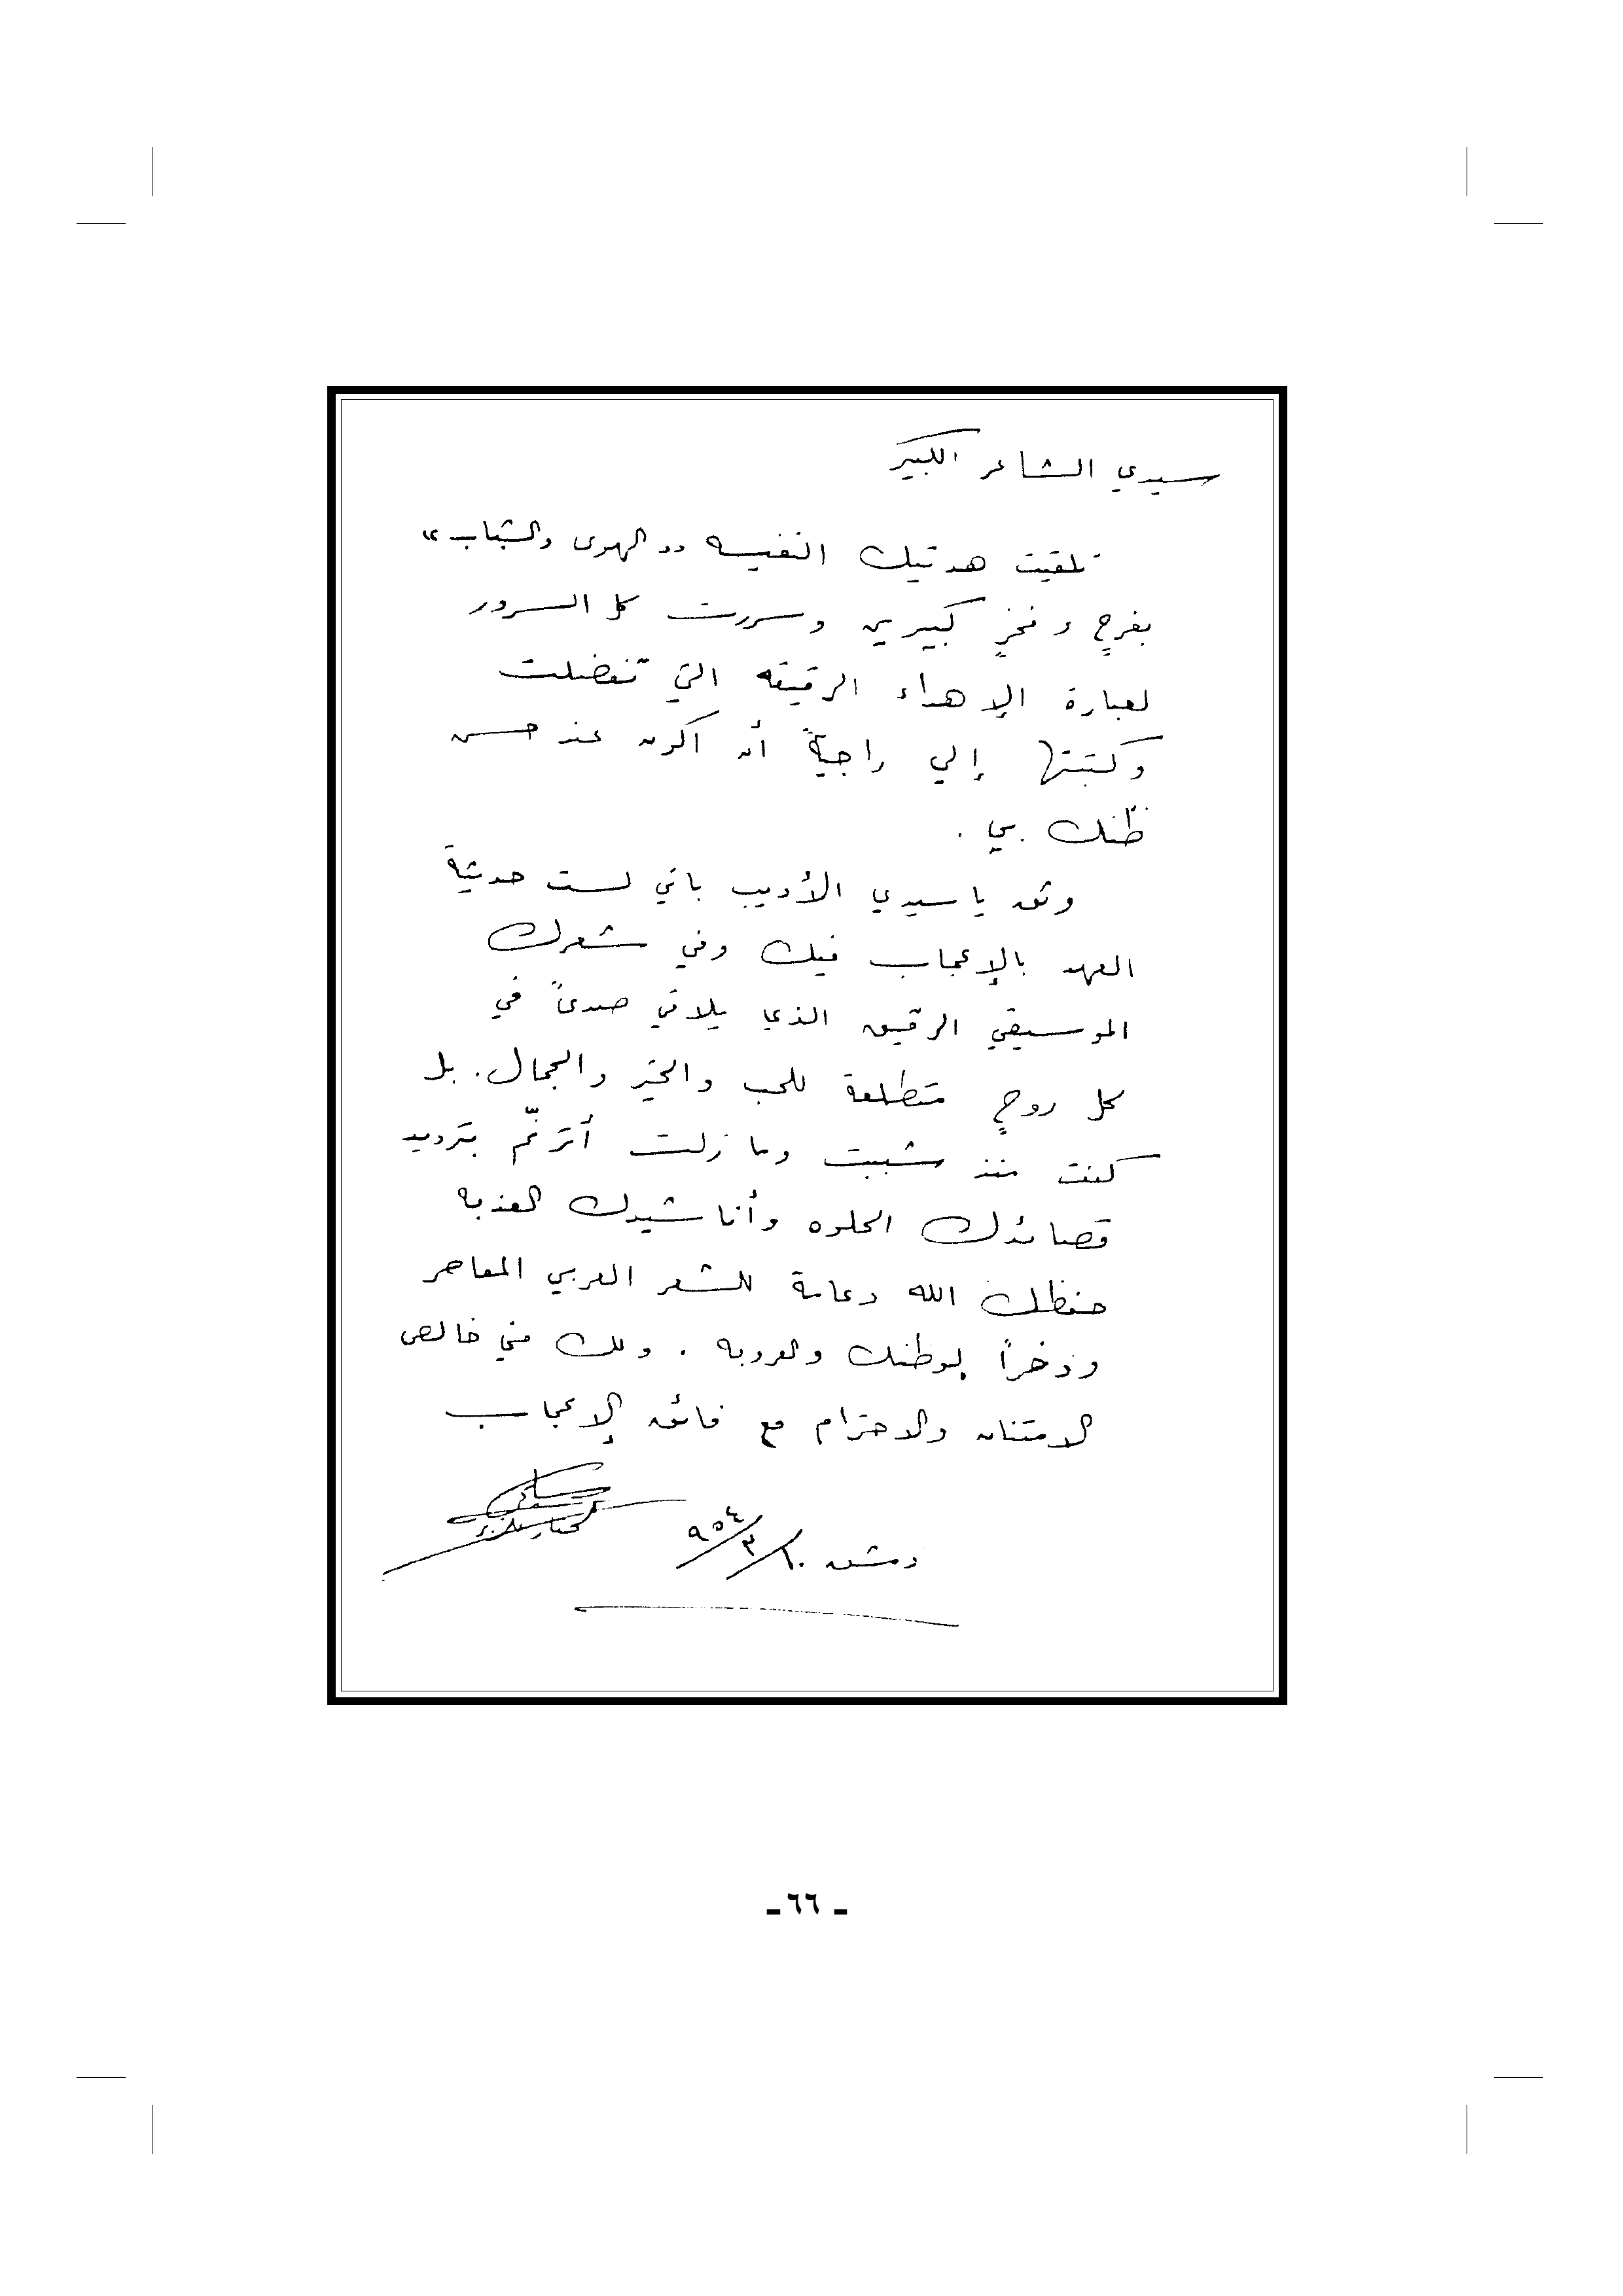 سيدي الشاعر الكبير
تلقيت هديتك النفيسه "الهوى والشباب"
بفرحٍ وفخرٍ كبيرين وسررت كل السرور
لعبارة الإهداء الرقيقه التي تفضلت
وكتبتها إلي راجيةً أن اكون عند حسن
ظنّك بي .
وثق يا سيدي الأديب باني لست حديثة
العهد بالإعجاب فيك وفي شعرك
الموسيقي الرقيق الذي يلاقي صدىً في
كل روحٍ متطلعة للحب والخير والجمال. بل
كنت منذ شببت وما زلت أترنّم بترديد
قصائدك الحلوه وأناشيدك العذبه
حفظك الله دعامة للشعر العربي المعاصر
وذخراً لوطنك والعروبه . ولك مني خالص
الامتنان والاحترام مع فائق الإعجاب
دمشق ١٠/٣/٩٥٤
ـ ٦٦ ـ